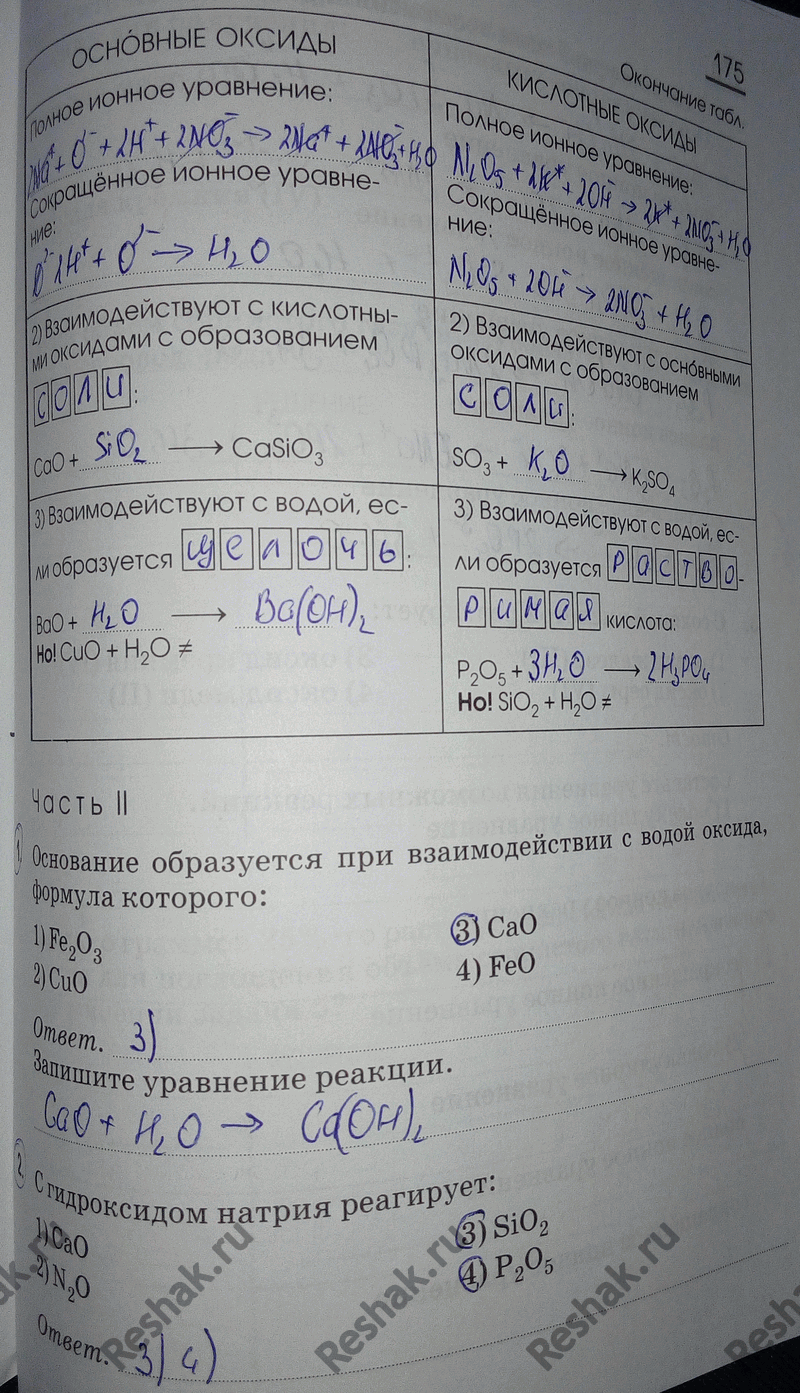 175
Окончание табл.
ОСНО́ВНЫЕ ОКСИДЫ
КИСЛОТНЫЕ ОКСИДЫ
Полное ионное уравнение:
2Na⁺ + O⁻ + 2H⁺ + 2NO₃⁻ → 2Na⁺ + 2NO₃⁻ + H₂O
Сокращённое ионное уравне-
ние:
2H⁺ + O²⁻ → H₂O
Полное ионное уравнение:
N₂O₅ + 2K⁺ + 2OH⁻ → 2K⁺ + 2NO₃⁻ + H₂O
Сокращённое ионное уравне-
ние:
N₂O₅ + 2OH⁻ → 2NO₃⁻ + H₂O
2) Взаимодействуют с кислотны-
ми оксидами с образованием
соли:
CaO + SiO₂ ⟶ CaSiO₃
2) Взаимодействуют с осно́вными
оксидами с образованием
соли:
SO₃ + K₂O ⟶ K₂SO₄
3) Взаимодействуют с водой, ес-
ли образуется щелочь:
BaO + H₂O ⟶ Ba(OH)₂
Но! CuO + H₂O ≠
3) Взаимодействуют с водой, ес-
ли образуется раство-
римая кислота:
P₂O₅ + 3H₂O ⟶ 2H₃PO₄
Но! SiO₂ + H₂O ≠
Часть II
1 Основание образуется при взаимодействии с водой оксида,
формула которого:
1) Fe₂O₃
2) CuO
3) CaO
4) FeO
Ответ. 3)
Запишите уравнение реакции.
CaO + H₂O → Ca(OH)₂
2 С гидроксидом натрия реагирует:
1) CaO
2) N₂O
3) SiO₂
4) P₂O₅
Ответ. 3) 4)
Reshak.ru
Reshak.ru
Reshak.ru